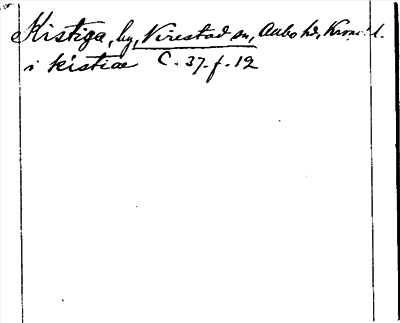 Kistiga, by, Virestad sn, Allbo hd, Kron. l.
i kistiae C. 37. f. 12